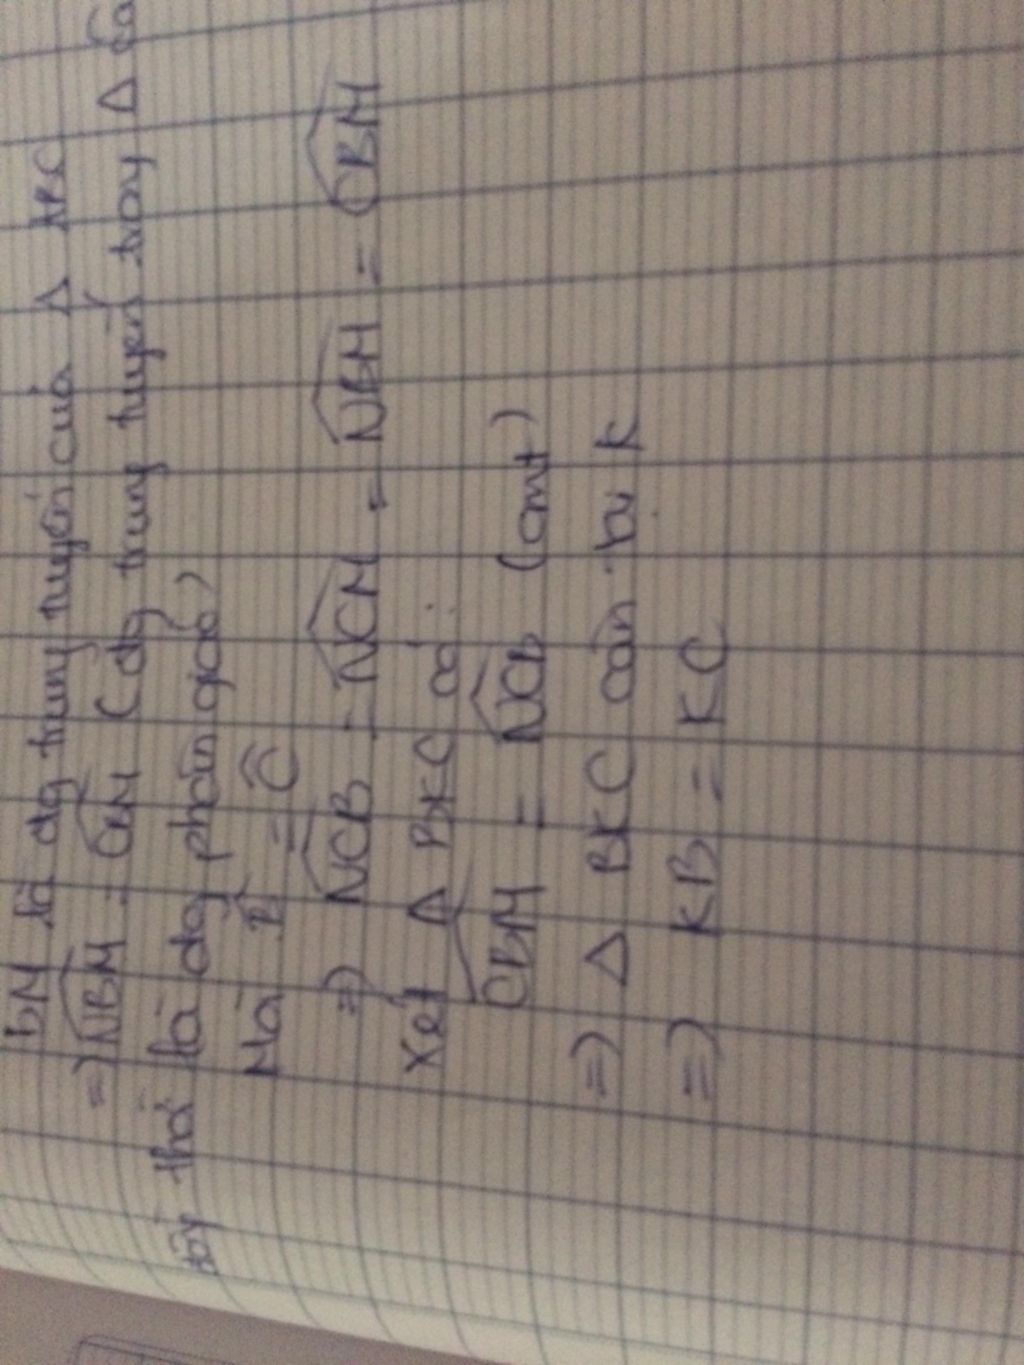 BM là đg trung tuyến của Δ ABC
=) N̂BM = ĈBM (đg trung tuyến trong Δ câ
đồng thời là đg phân giác)
Mà B̂ = Ĉ
=) N̂CB = N̂CM = N̂BM = ĈBM
Xét Δ BKC có:
ĈBM = N̂CB (cmt)
=) Δ BKC cân tại K
=) KB = KC